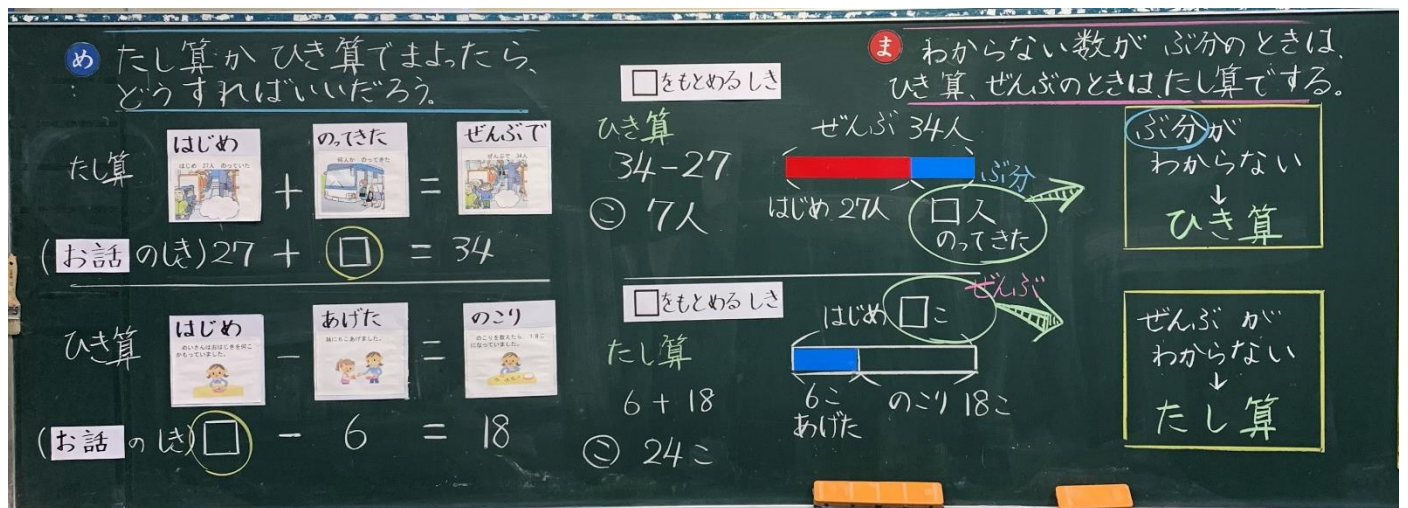 め たし算か ひき算でまよったら、
どうすればいいだろう。
たし算
はじめ
はじめ 27人 のっていた
+
のってきた
何人か のってきた
=
ぜんぶで
ぜんぶで 34人
(お話のしき) 27 + □ = 34
ひき算
はじめ
めいさんはおはじきを何こ
かもっていました。
−
あげた
妹に6こあげました。
=
のこり
のこりを数えたら、18こ
になっていました。
(お話のしき) □ − 6 = 18
□をもとめる しき
ひき算
34−27
こ 7人
ぜんぶ 34人
ぶ分
はじめ 27人
□人
のってきた
□をもとめる しき
たし算
6+18
こ 24こ
ぜんぶ
はじめ □こ
6こ
あげた
のこり 18こ
ま わからない数が ぶ分のときは、
ひき算、ぜんぶのときは、たし算でする。
ぶ分が
わからない
↓
ひき算
ぜんぶ が
わからない
↓
たし算